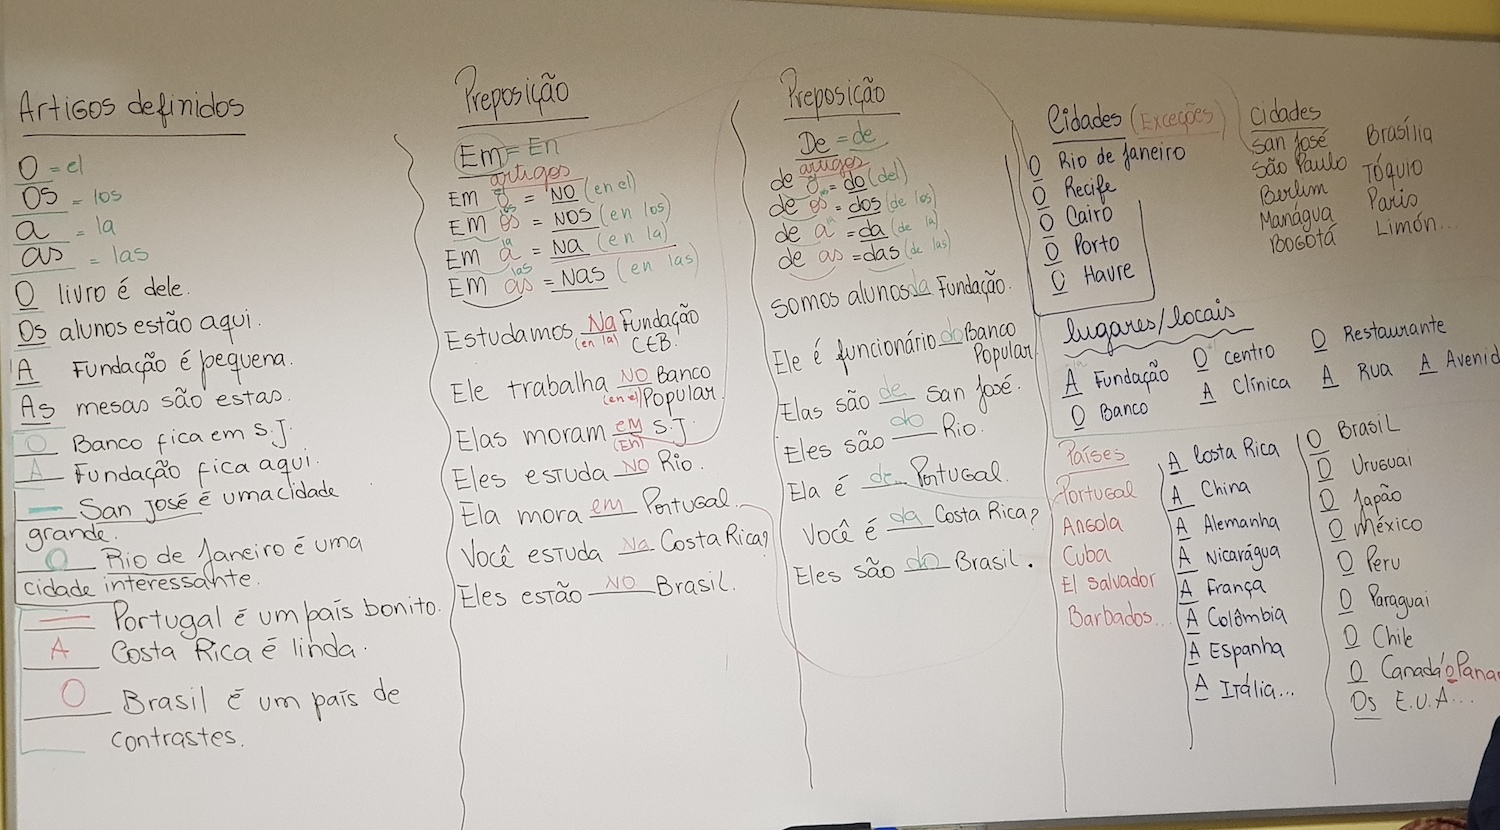 Artigos definidos
O = el
Os = los
a = la
as = las
O livro é dele.
Os alunos estão aqui.
A Fundação é pequena.
As mesas são estas.
O Banco fica em S.J.
A Fundação fica aqui.
— San José é uma cidade
grande.
O Rio de Janeiro é uma
cidade interessante.
— Portugal é um país bonito.
A Costa Rica é linda.
O Brasil é um país de
contrastes.
Preposição
Em = En
artigos
Em o = NO (en el)
os
Em os = NOS (en los)
la
Em a = NA (en la)
las
Em as = NAS (en las)
Estudamos Na Fundação
(en la) CEB.
Ele trabalha NO Banco
(en el) Popular.
Elas moram em S.J.
(En)
Eles estuda NO Rio.
Ela mora em Portugal.
Você estuda Na Costa Rica?
Eles estão NO Brasil.
Preposição
De = de
artigos
de o = do (del)
de os = dos (de los)
la
de a = da (de la)
de as = das (de las)
Somos alunos da Fundação.
Ele é funcionário do Banco
Popular.
Elas são de San José.
Eles são do Rio.
Ela é de Portugal.
Você é da Costa Rica?
Eles são do Brasil.
Cidades (Exceções)
O Rio de Janeiro
O Recife
O Cairo
O Porto
O Havre
Cidades
San José Brasília
São Paulo Tóquio
Berlim Paris
Manágua Limón...
Bogotá
lugares/locais
A Fundação O centro O Restaurante
O Banco A Clínica A Rua A Avenid
Países
Portugal
Angola
Cuba
El Salvador
Barbados...
A Costa Rica
A China
A Alemanha
A Nicarágua
A França
A Colômbia
A Espanha
A Itália...
O Brasil
O Uruguai
O Japão
O México
O Peru
O Paraguai
O Chile
O Canadá o Pana
Os E.U.A...